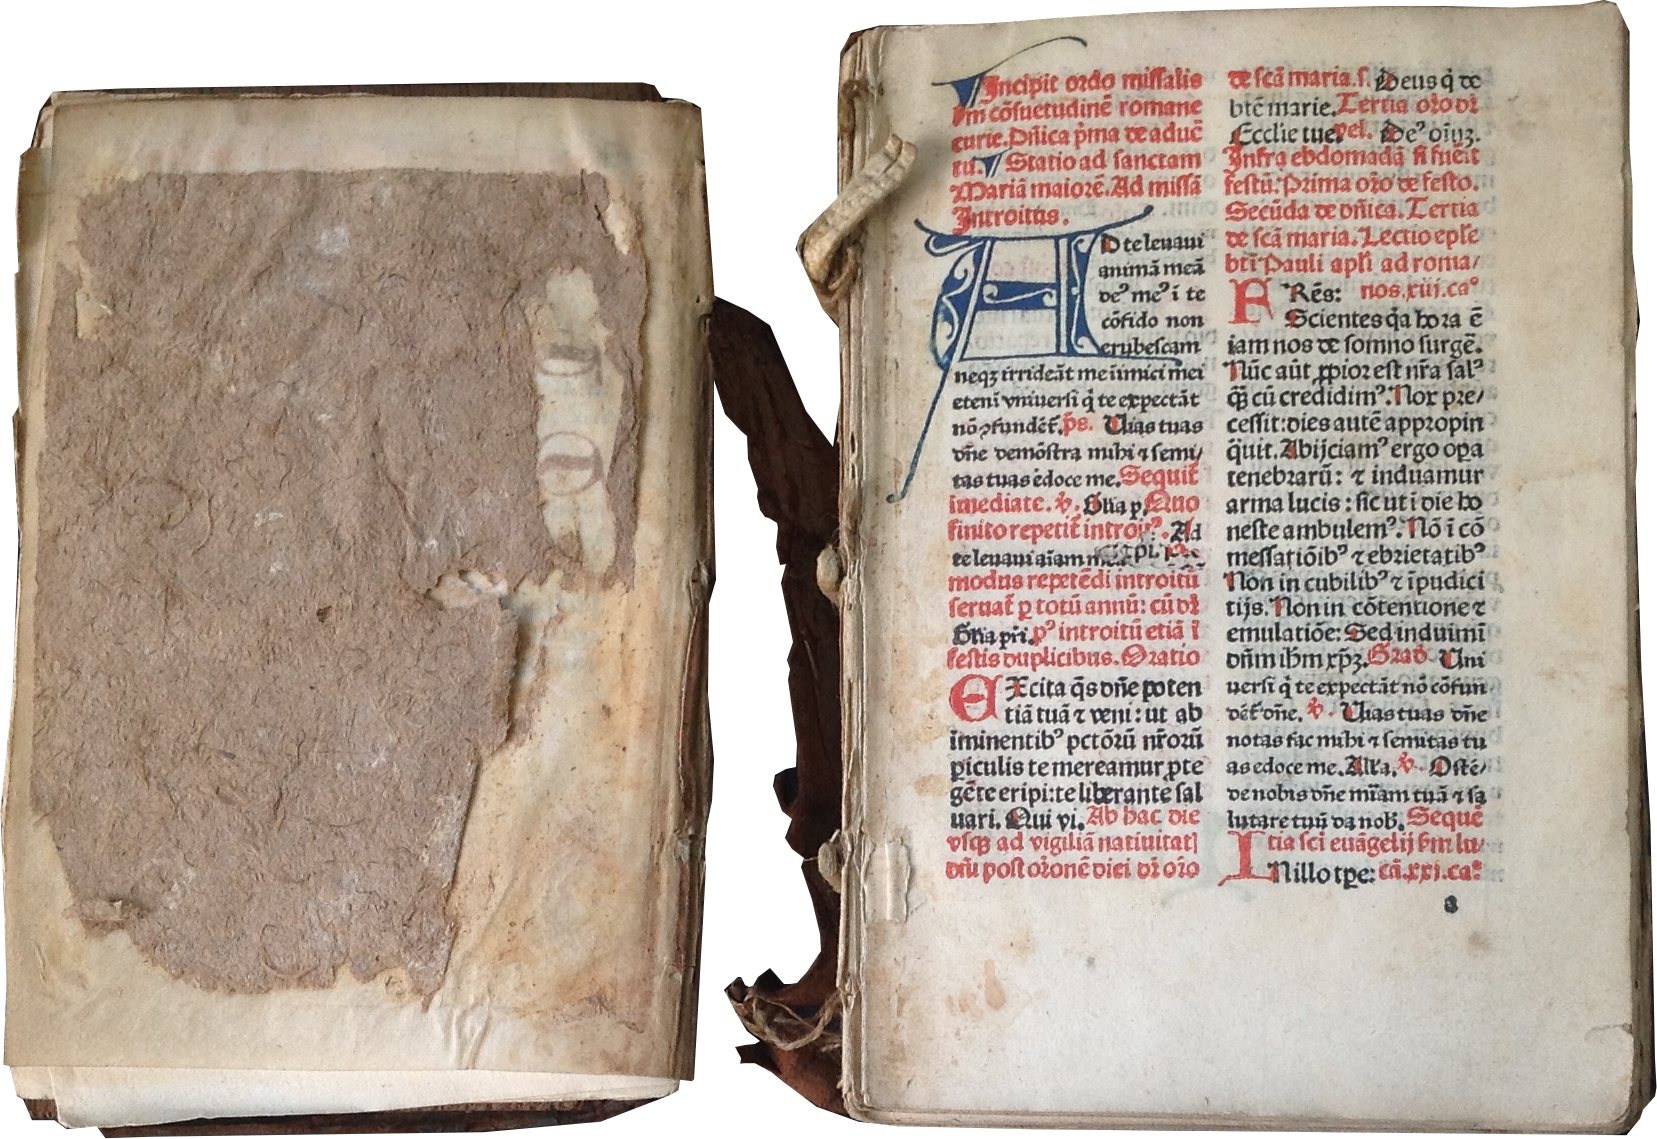 Incipit ordo missalis
ẜm cõsuetudinē romane
curie. Dñica p̄ma de aduē
tu. Statio ad sanctam
Mariã maiorē. Ad missã
Introitus.
AD te leuaui
animã meã
deꝰ meꝰ ĩ te
cõfido non
erubescam
neqꝫ irrideãt me inimici mei
etenĩ vniuersi q̇ te expectãt
nõ ꝯfundēt̃. p̄s. Uias tuas
dñe demõstra mihi ⁊ semi/
tas tuas edoce me. Sequit̃
imediate. ꝟ. Glia p̱. Quo
finito repetit̃ introitꝰ. Ad
te leuaui aĩam
modus repetēdi introitũ
seruat̃ ꝑ totũ annũ: cũ dr̃
Glia p̃ri. pꝰ introitũ etiã ĩ
festis duplicibus. Oratio
EXcita q̄s dñe poten
tiã tuã ⁊ veni: ut ab
ĩminentibꝰ pctõrũ nr̃orũ
ꝑiculis te mereamur ꝓte
gēte eripi: te liberante sal
uari. Qui vi. Ab hac die
vsqꝫ ad vigiliã natiuitatꝭ
dñi post or̃onē diei dr̃ or̃o
de scã maria. s. Deus q̇ de
btē marie. Tertia or̃o dr̃
Ecclie tue. vel. Deꝰ oĩuꝫ.
Infra ebdomadã si fuēit
festũ: Prima or̃o de festo.
Secũda de dñica. Tertia
de scã maria. Lectio epl̃e
btĩ Pauli apl̃i ad roma/
FRēs: nos. xiij. caº
Scientes q̇a hora ē
iam nos de somno surgē.
Nũc aũt ꝓpior est nr̃a salꝰ
q̄ꝫ cũ credidimꝰ. Nox pre/
cessit: dies autē appropin
q̇uit. Abijciamꝰ ergo oꝑa
tenebrarũ: ⁊ induamur
arma lucis: sic ut ĩ die ho
neste ambulemꝰ. Nõ ĩ cõ
messatiõibꝰ ⁊ ebrietatibꝰ
Non in cubilibꝰ ⁊ ĩpudici
tijs. Non in cõtentione ⁊
emulatiõe: Sed induimĩ
dñm ihm xp̄ꝫ. Grad. Uni
uersi q̇ te expectãt nõ cõfun
dēt̃ dñe. ꝟ. Uias tuas dñe
notas fac mihi ⁊ semitas tu
as edoce me. Alla. ꝟ. Ostē/
de nobis dñe mĩam tuã ⁊ sa
lutare tuũ da nob̃. Sequē
tia sci euãgelij ẜm lu/
INillo tp̱e: cã. xxi. caº
a